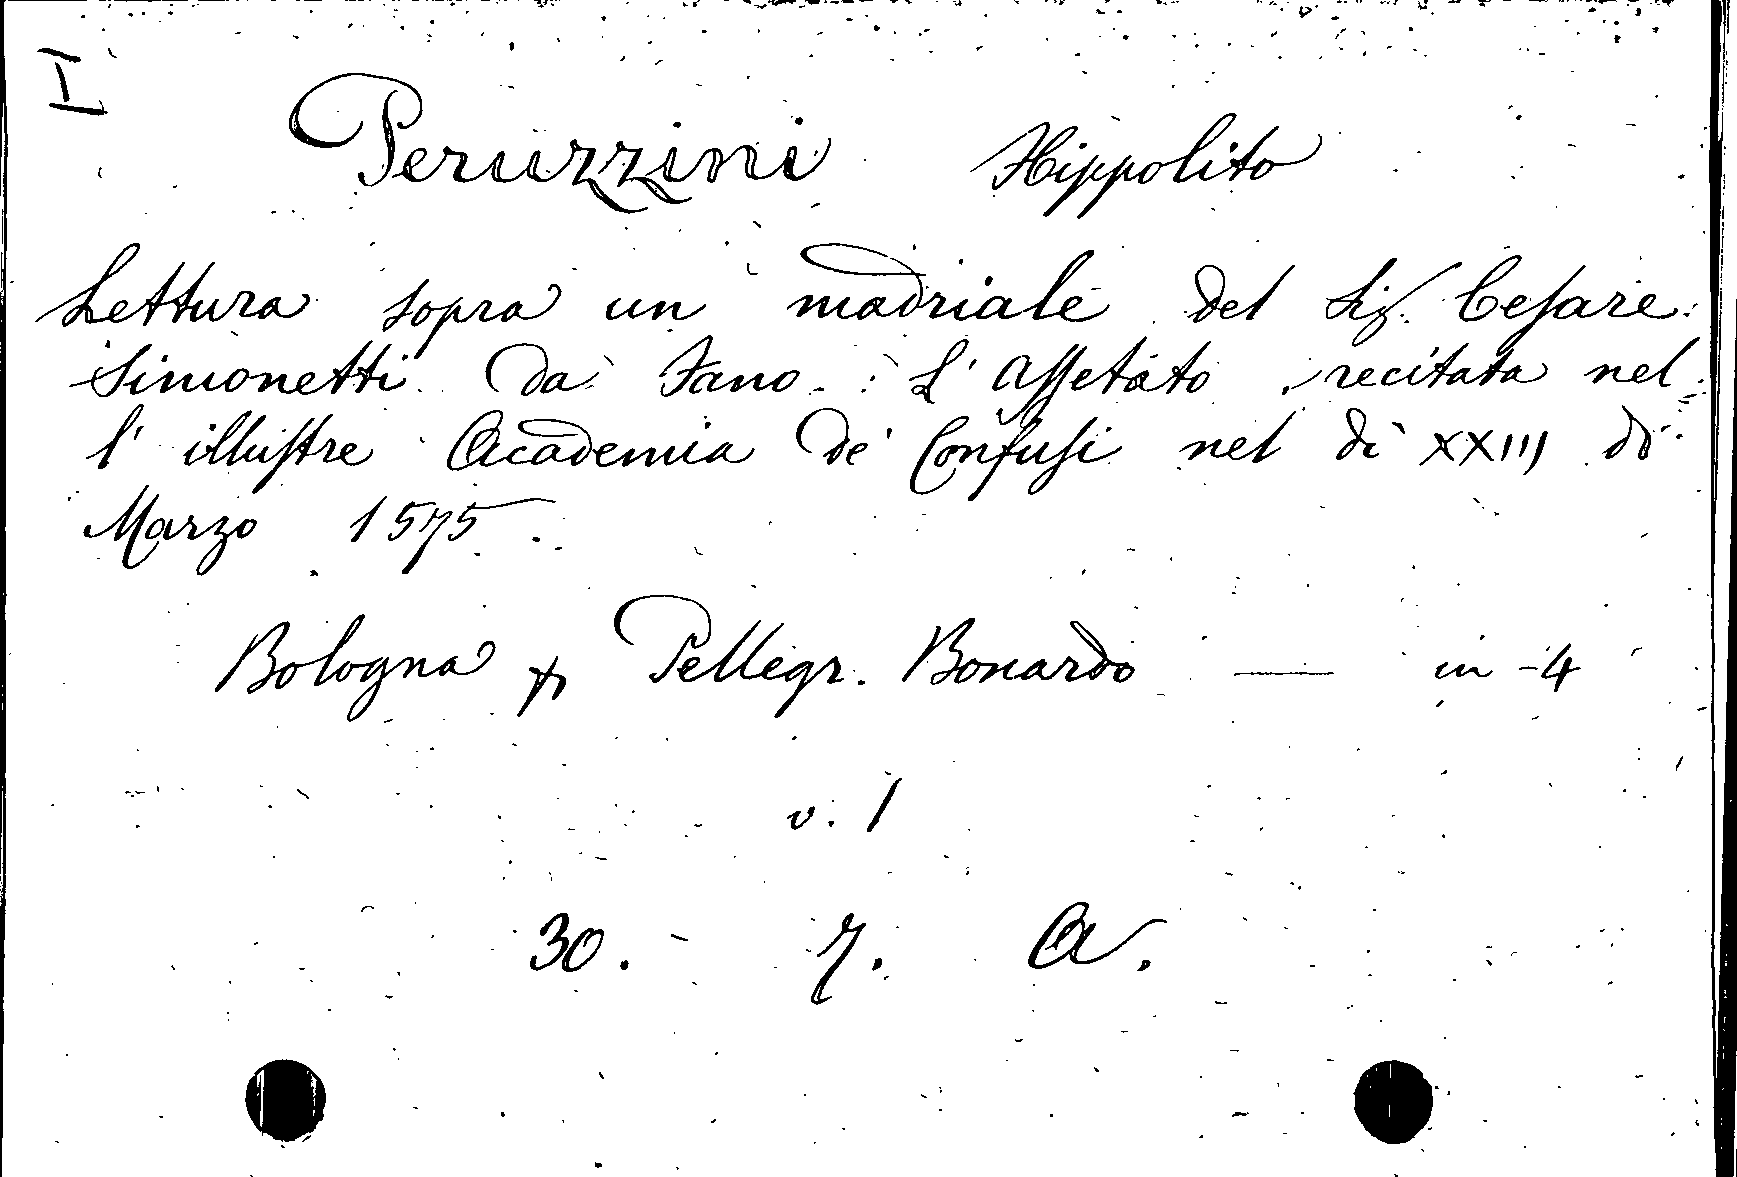 I
Peruzzini Hippolito
Lettura sopra un madriale del Sig. Cesare
Simonetti da Fano. L' Assetato, recitata nel
l' illustre Academia de' Confusi nel dì XXIII di
Marzo 1575.
Bologna Pellegr. Bonardo — in-4
v. 1
30. 7. A.